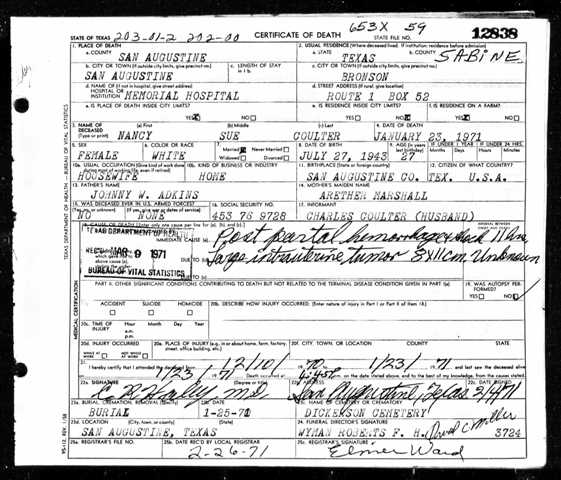 653X 59
STATE OF TEXAS 203-01-2 202-00 CERTIFICATE OF DEATH STATE FILE NO. 12838
1. PLACE OF DEATH 2. USUAL RESIDENCE (Where deceased lived. If institution: residence before admission)
a. COUNTY SAN AUGUSTINE a. STATE TEXAS b. COUNTY SABINE
b. CITY OR TOWN (If outside city limits, give precinct no.) c. LENGTH OF STAY c. CITY OR TOWN (If outside city limits, give precinct no.)
SAN AUGUSTINE BRONSON
d. NAME OF (If not in hospital, give street address) HOSPITAL OR INSTITUTION MEMORIAL HOSPITAL d. STREET ADDRESS (If rural, give location) ROUTE 1 BOX 52
e. IS PLACE OF DEATH INSIDE CITY LIMITS? YES NO e. IS RESIDENCE INSIDE CITY LIMITS? YES NO f. IS RESIDENCE ON A FARM? YES NO
3. NAME OF DECEASED (Type or print) (a) First (b) Middle (c) Last 4. DATE OF DEATH
NANCY SUE COULTER JANUARY 23, 1971
5. SEX 6. COLOR OR RACE 7. Married Never Married Widowed Divorced 8. DATE OF BIRTH 9. AGE (In years) IF UNDER 1 YEAR IF UNDER 24 HRS.
FEMALE WHITE JULY 27, 1943 27 Months Days Hours Minutes
10a. USUAL OCCUPATION (Give kind of work done during most of working life, even if retired) 10b. KIND OF BUSINESS OR INDUSTRY 11. BIRTHPLACE (State or foreign country) 12. CITIZEN OF WHAT COUNTRY?
HOUSEWIFE HOME SAN AUGUSTINE CO. TEX. U.S.A.
13. FATHER'S NAME 14. MOTHER'S MAIDEN NAME
JOHNNY W. ADKINS ARETHER MARSHALL
15. WAS DECEASED EVER IN U.S. ARMED FORCES? 16. SOCIAL SECURITY NO. 17. INFORMANT
NO NONE 453 76 9728 CHARLES COULTER (HUSBAND)
18. CAUSE OF DEATH (Enter only one cause per line for (a), (b), and (c).)
IMMEDIATE CAUSE (a) Post partal hemorrhage & shock 11 hrs
TEXAS DEPARTMENT OF HEALTH
REC'D MAR 9 1971
BUREAU OF VITAL STATISTICS
DUE TO Large intrauterine tumor 8x11 cm. Unknown
PART II. OTHER SIGNIFICANT CONDITIONS CONTRIBUTING TO DEATH BUT NOT RELATED TO THE TERMINAL DISEASE CONDITION GIVEN IN PART I(a) 19. WAS AUTOPSY PERFORMED?
YES NO
20a. ACCIDENT SUICIDE HOMICIDE 20b. DESCRIBE HOW INJURY OCCURRED. (Enter nature of injury in Part I or Part II of Item 18.)
20c. TIME OF INJURY Hour a.m. p.m. Month Day Year
20d. INJURY OCCURRED WHILE AT WORK NOT WHILE AT WORK 20e. PLACE OF INJURY (e.g. in or about home, farm, factory, street, office building, etc.) 20f. CITY, TOWN, OR LOCATION COUNTY STATE
21. I hereby certify that I attended the deceased from 12/10/ 70 to 1/23/ 71 and last saw the deceased alive
on 1/23 71 Death occurred at m. on the date stated above, and to the best of my knowledge, from the causes stated.
22a. SIGNATURE (Degree or title) 22b. ADDRESS 22c. DATE SIGNED
M.D. San Augustine, Texas 2/4/71
23a. BURIAL, CREMATION, REMOVAL (Specify) 23b. DATE 23c. NAME OF CEMETERY OR CREMATORY
BURIAL 1-25-71 DICKERSON CEMETERY
23d. LOCATION (City, town, or county) (State) 24. FUNERAL DIRECTOR'S SIGNATURE
SAN AUGUSTINE, TEXAS WYMAN ROBERTS F. H. David C. Miller 3724
25a. REGISTRAR'S FILE NO. 25b. DATE REC'D BY LOCAL REGISTRAR 25c. REGISTRAR'S SIGNATURE
2-26-71 Elmer Ward
TEXAS DEPARTMENT OF HEALTH — BUREAU OF VITAL STATISTICS
MEDICAL CERTIFICATION
VS-112, REV. 1/58